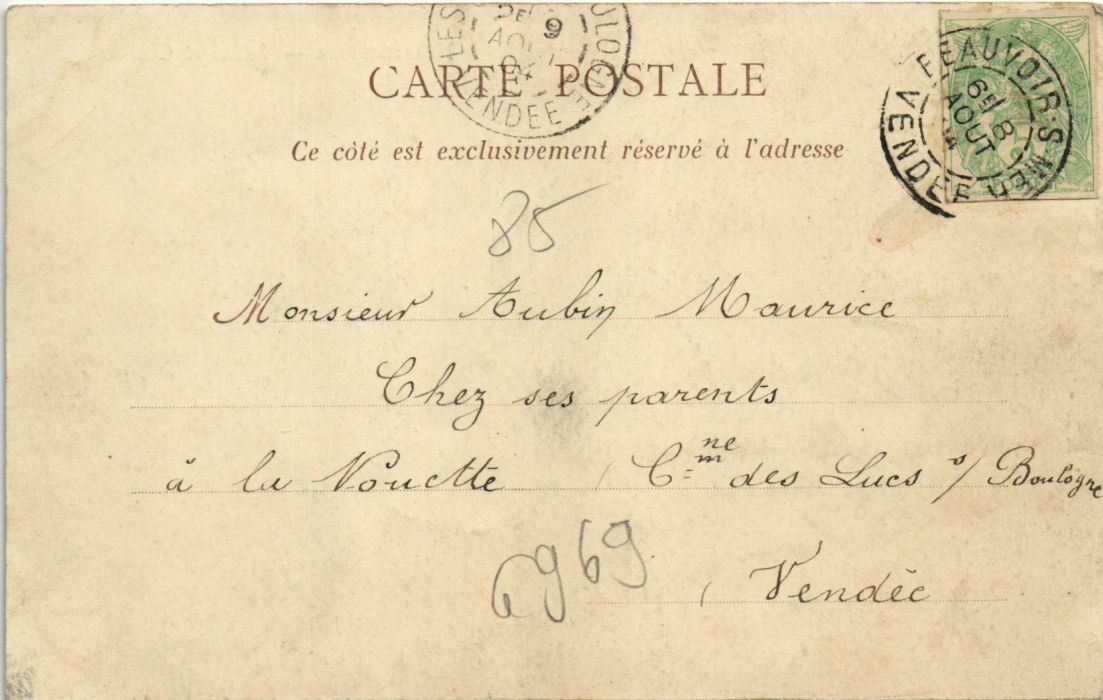 CARTE POSTALE
Ce côté est exclusivement réservé à l'adresse
BEAUVOIR-S-MER
6E 8
AOUT
04
VENDEE
LES
9
AOUT
04
VENDEE
85
Monsieur Aubin Maurice
Chez ses parents
à la Nouette (Cne des Lucs s/ Boulogne
6969
(Vendée